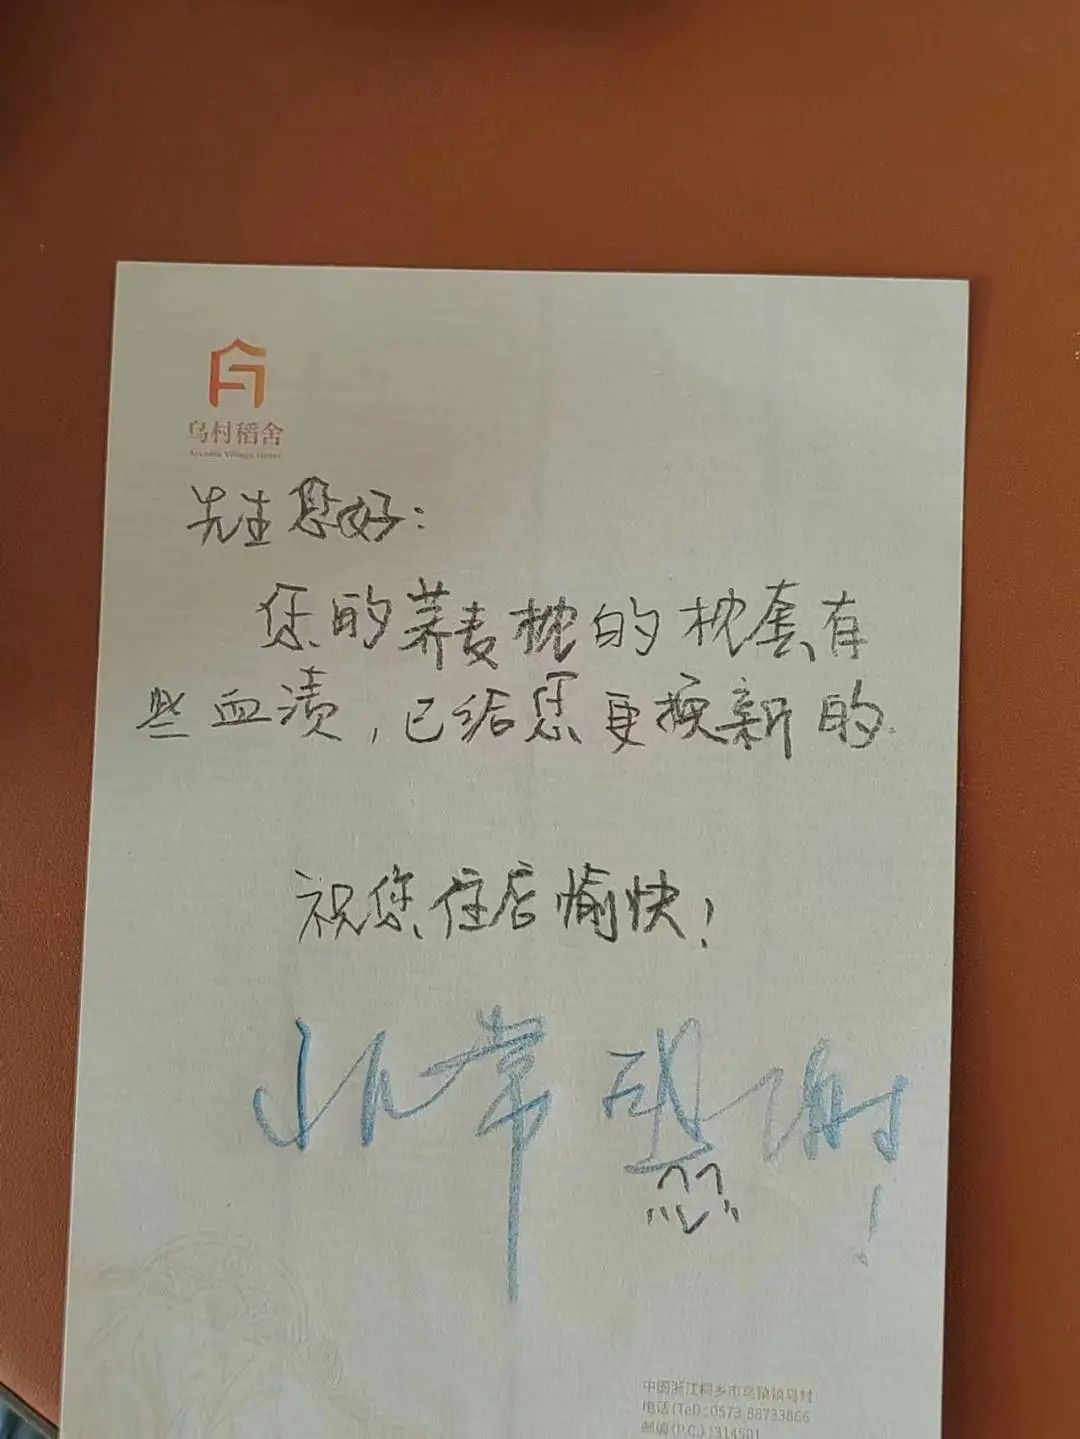 乌村稻舍
Arcadia Village Hotel
先生您好：
您的荞麦枕的枕套有
些血渍，已给您更换新的.
祝您住店愉快！
非常感谢！
中国浙江桐乡市乌镇镇乌村
电话(Tel):0573 88733866
邮编(P.C.):314501